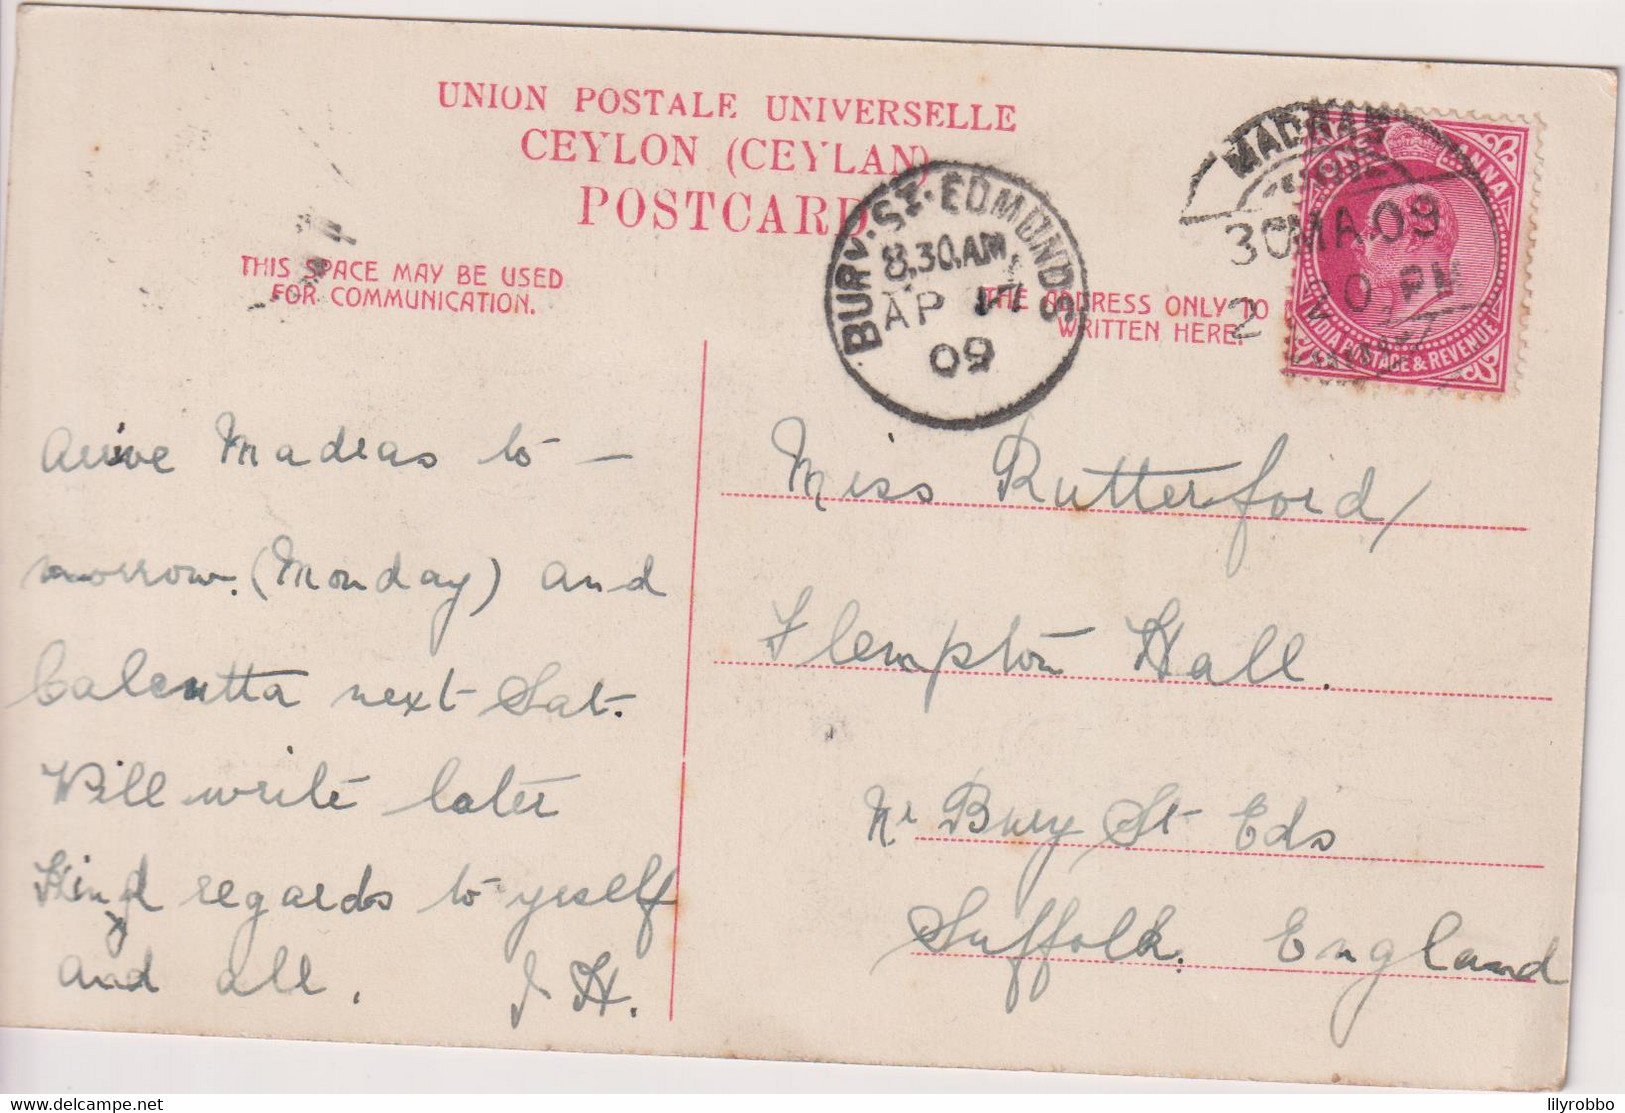 UNION POSTALE UNIVERSELLE
CEYLON (CEYLAN)
POSTCARD
THIS SPACE MAY BE USED
FOR COMMUNICATION.
THE ADDRESS ONLY TO
WRITTEN HERE.
BURY·ST·EDMUNDS
8.30.AM
AP 17
09
MADRAS
30 MA.09
2 20 PM
ONE ANNA
INDIA POSTAGE & REVENUE
Arrive Madras to –
morrow. (Monday) and
Calcutta next Sat.
Will write later
Kind regards to yrself
and all. J H.
Miss Rutterford/
Flempton Hall.
Nr Bury St Eds
Suffolk. England
lilyrobbo